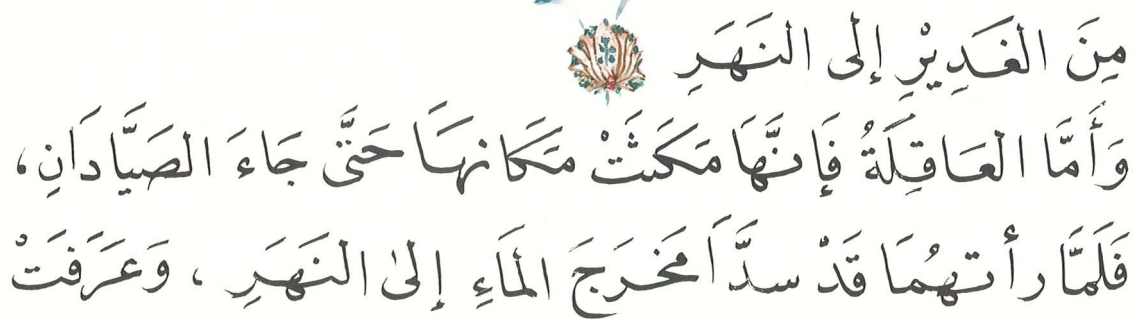 مِنَ الغَدِيْرِ إِلَى النَهَرِ
وَأَمَّا العَاقِلَةُ فَإِنَّهَا مَكَثَتْ مَكَانهَا حَتَّى جَاءَ الصَيَّادَانِ،
فَلَمَّا رأتهُمَا قَدْ سدَّاَ مَخرَجَ المَاءِ إِلىٰ النَهَرِ ، وَعَرَفَتْ